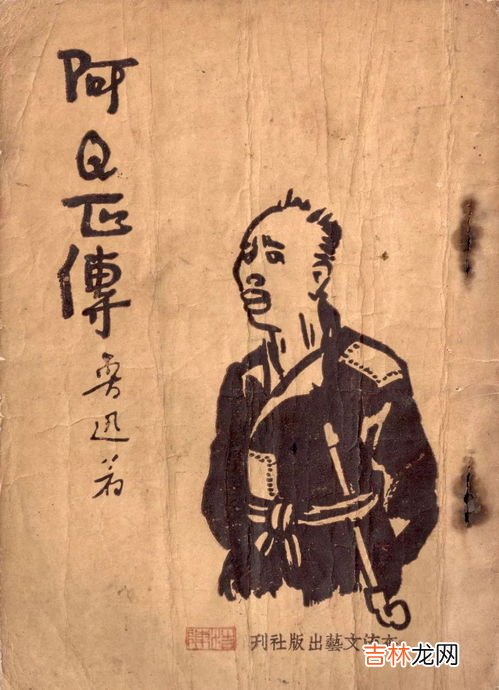 阿Q正傳
魯迅著
流文藝出版社刊
吉林龙网